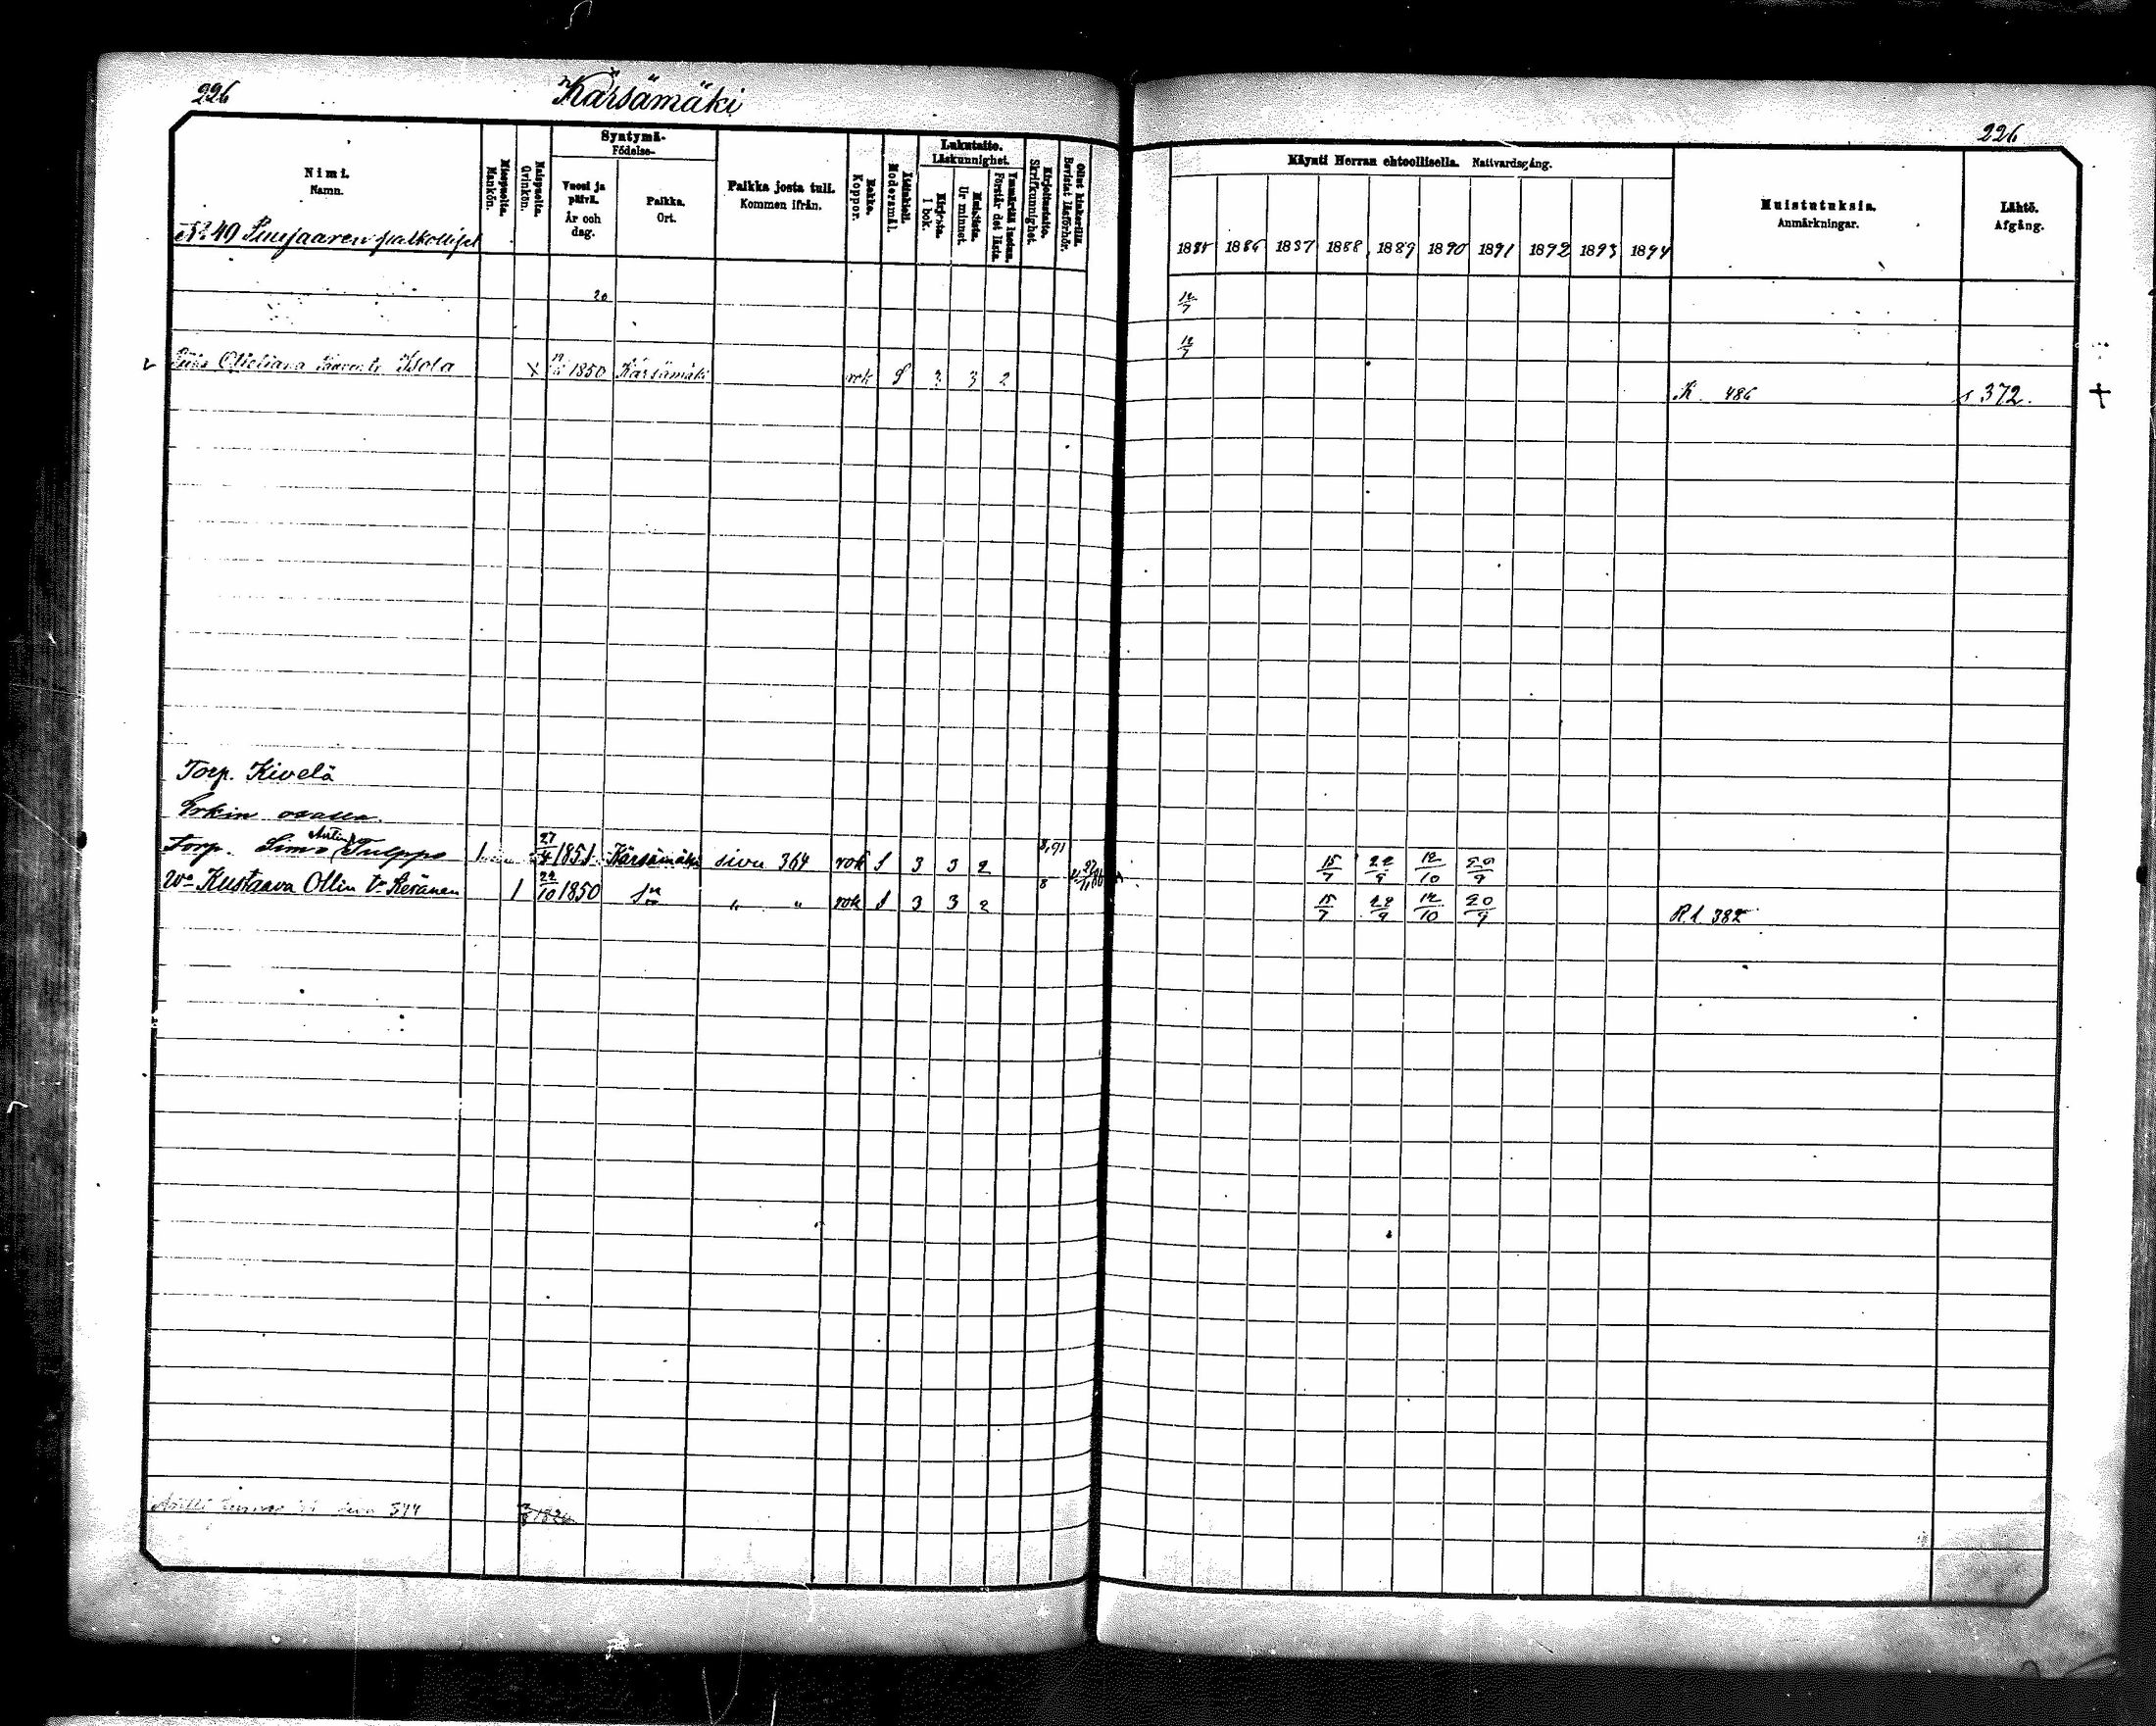 226 Kärsämäki 226
Nimi. Namn.
Miespuolta. Mankön.
Naispuolta. Qvinkön.
Syntymä- Födelse-
Vuosi ja päivä. År och dag.
Paikka. Ort.
Paikka josta tuli. Kommen ifrån.
Rokko. Koppor.
Äidinkieli. Modersmål.
Lukutaito. Läskunnighet.
Kirjasta. I bok.
Muistista. Ur minnet.
Ymmärtää luetun. Förstår det lästa.
Kirjoitustaito. Skrifkunnighet.
Ollut kinkerillä. Bevistat läsförhör.
Käynti Herran ehtoollisella. Nattvardsgång.
1885 1886 1887 1888 1889 1890 1891 1892 1893 1894
Muistutuksia. Anmärkningar.
Lähtö. Afgång.
No 40 palkolliset
20 12/7
12/7
Isola X 1850 Kärsämäki rok S 3 3 2 K. 486 s 372. +
Torp. Kivelä
Erkin
Torp. Simo Antinp Tulppo 1 27/4 1851 Kärsämäki sivu 364 rok S 3 3 2 8,91 15/7 22/9 12/10 20/9
Wo Kustaava Ollin tr Keränen 1 22/10 1850 " " rok S 3 3 2 8 15/7 22/9 12/10 20/9 R.l. 382